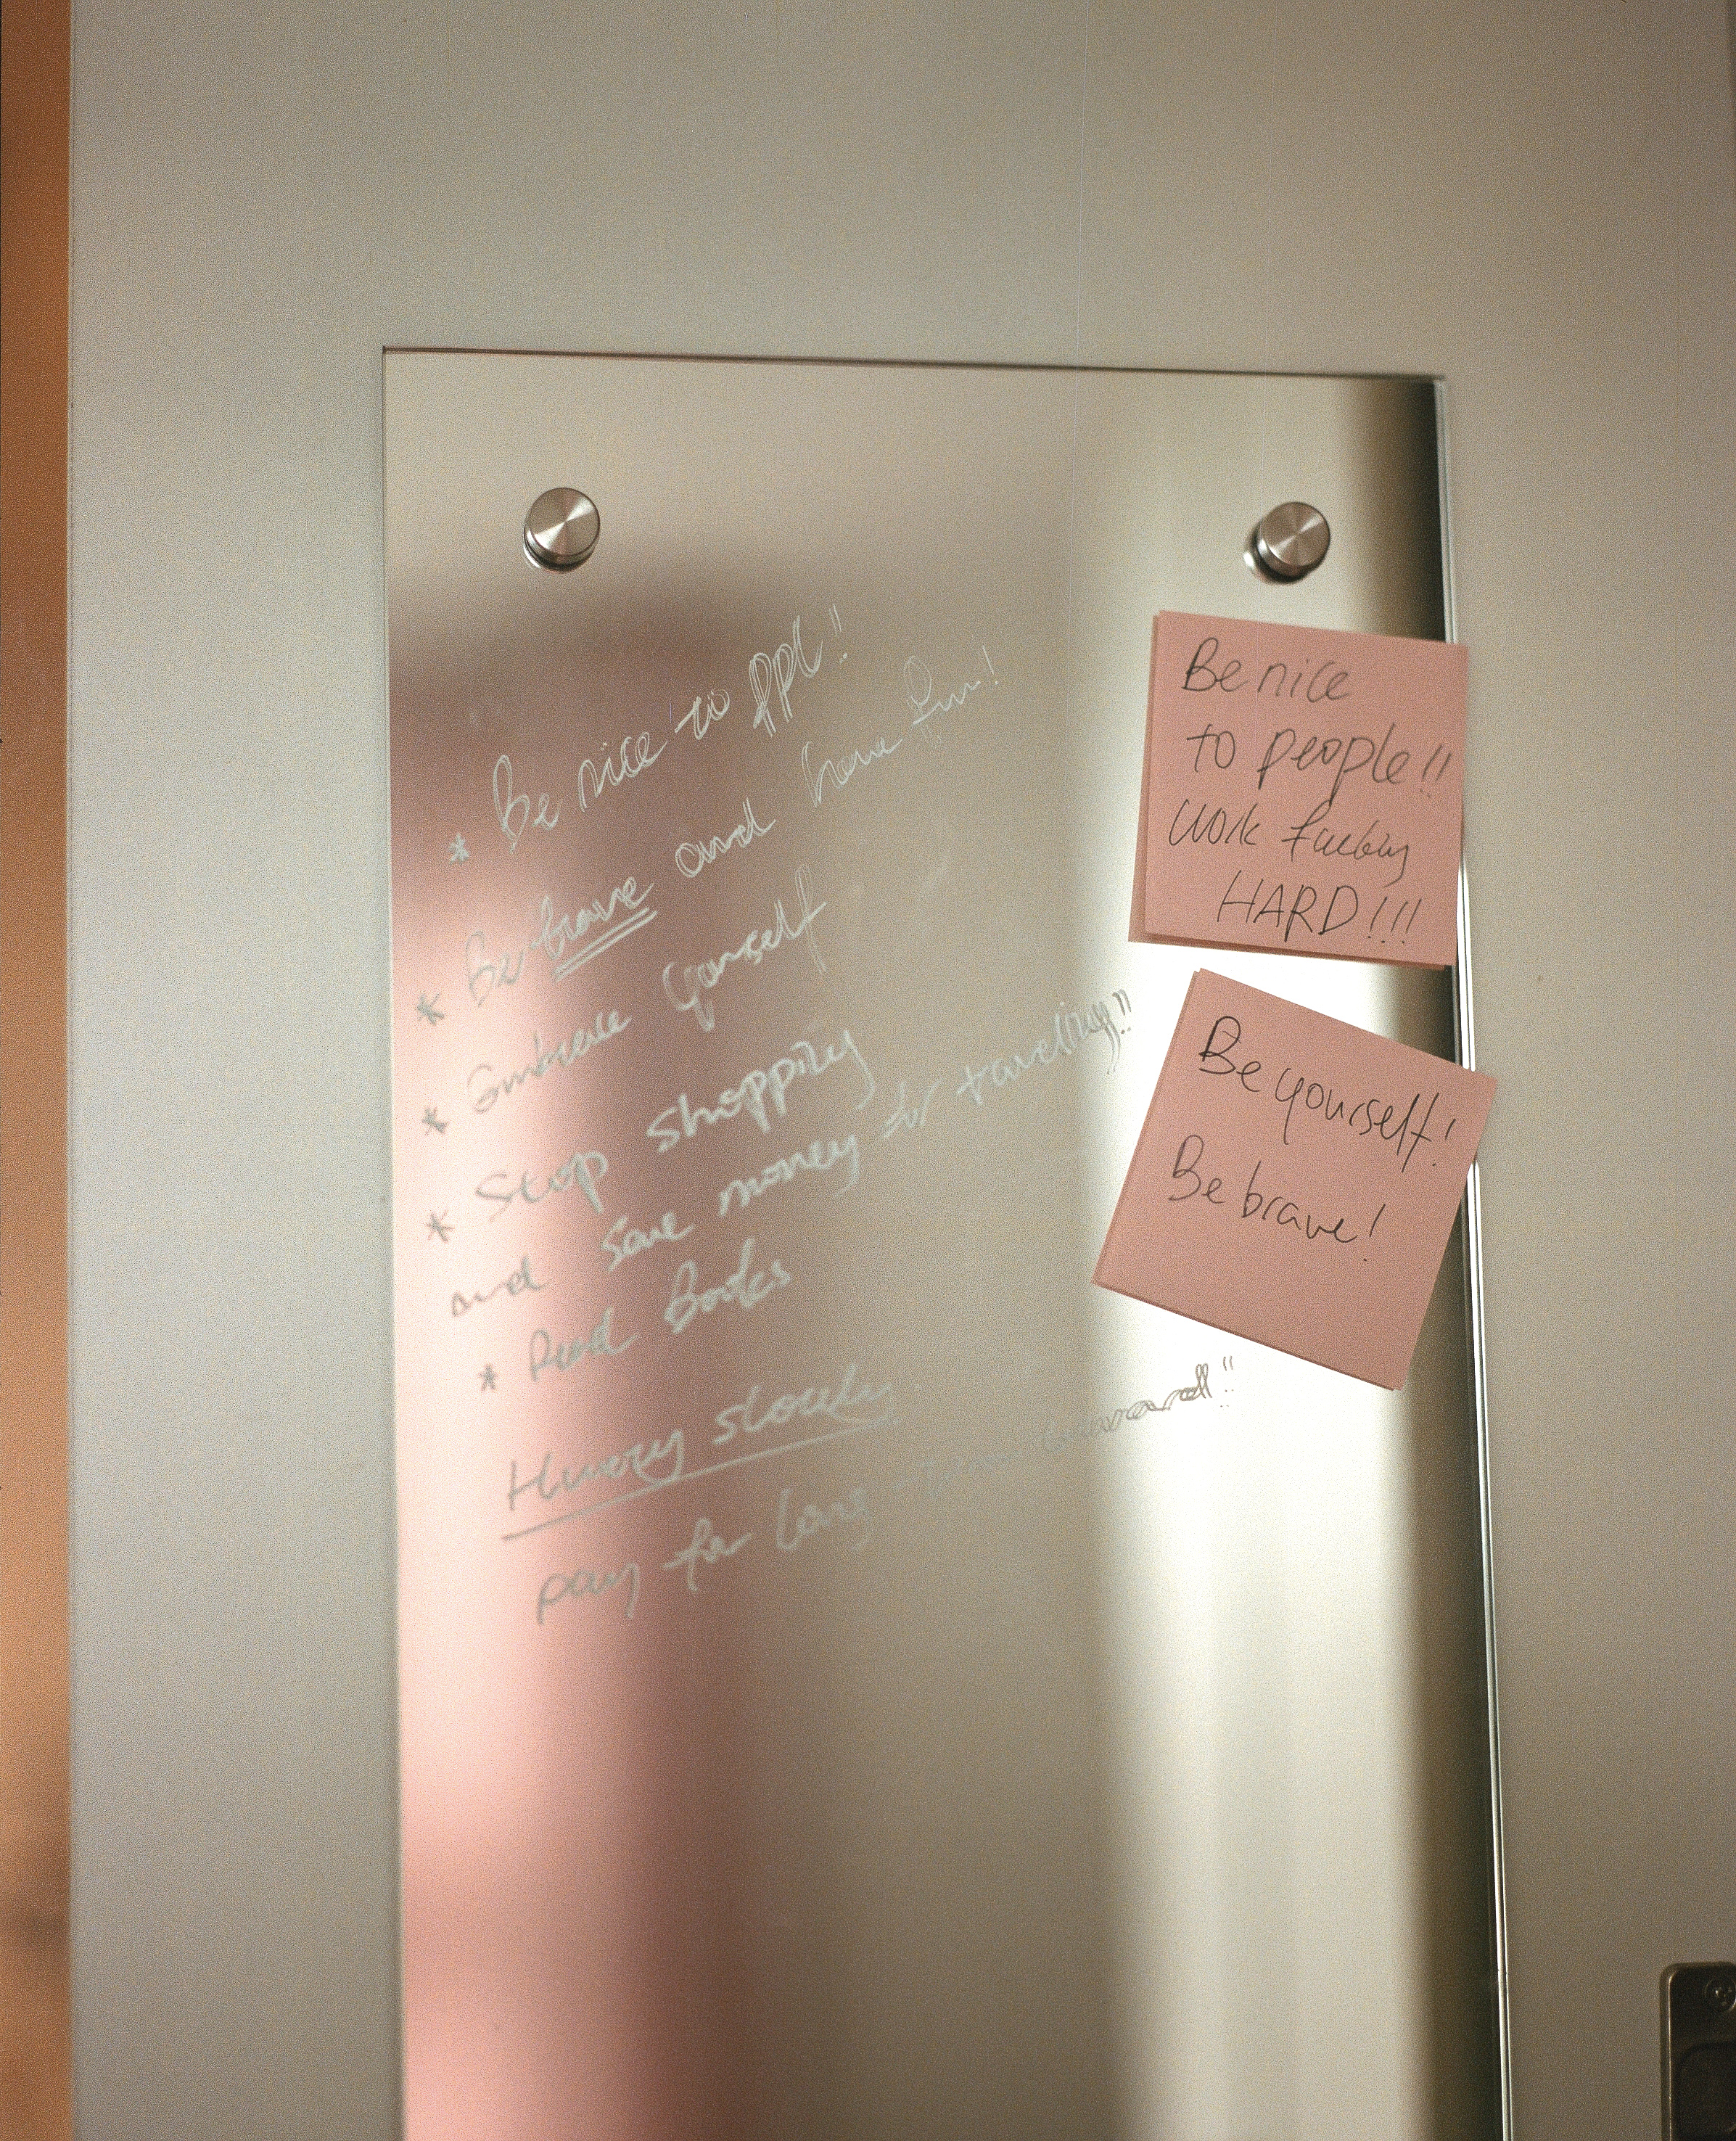 * Be nice to ppl!!
* Be brave and have fun!
* Embrace yourself
* Stop shopping
and save money for travelling!!
* Read Books
Hurry slowly
pay for long-term
Be nice
to people!!
Work
HARD!!!
Be yourself!
Be brave!